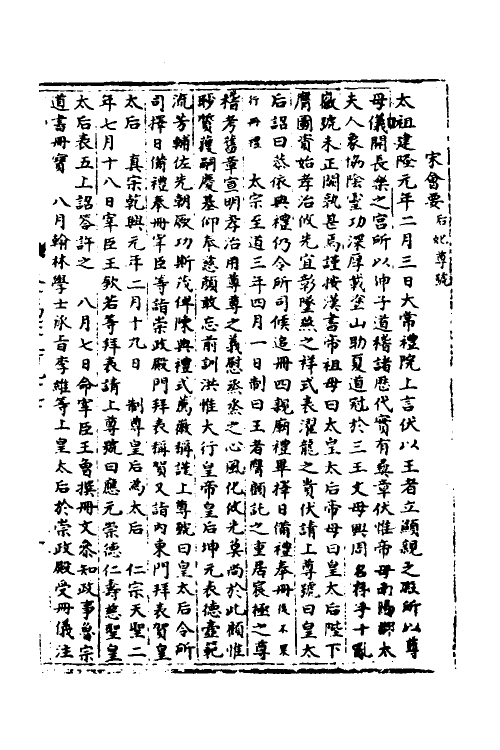 宋會要 后妃尊號
太祖建隆元年二月三日大常禮院上言伏以王者立顧親之殿所以尊
母儀開長樂之宮所以伸子道稽諸歷代實有彝章伏惟帝母南陽郡太
夫人裒偈陰靈功深厚載塗山助夏道冠於三王文母興周名存乎十亂
徽號未正闕孰甚焉謹按漢書帝祖母曰太皇太后帝母曰皇太后陛下
膺圖資始孝治攸先宜彰墜典之祥式表濯龍之貴伏請上尊號曰皇太
后詔曰恭依典禮仍令所司候追冊四親廟禮畢擇日備禮奉冊後不果
行冊禮 太宗至道三年四月一日制曰王者膺顧託之重居宸極之尊
稽考舊章宣明孝治用尊尊之義慰烝烝之心風化攸先莫尚於此顧惟
眇質獲嗣慶基仰奉慈顏敢忘前訓洪惟大行皇帝皇后坤元表德壼範
流芳輔佐先朝厥功斯茂俾陳典禮式薦徽稱謹上尊號曰皇太后令所
司擇日備禮奉冊宰臣等詣崇政殿門拜表稱賀又詣內東門拜表賀皇
太后 真宗乾興元年二月十九日 制尊皇后為太后 仁宗天聖二
年七月十八日宰臣王欽若等拜表請上尊號曰應元崇德仁壽慈聖皇
太后表五上詔答許之 八月七日命宰臣王曾撰冊文參知政事魯宗
道書冊寶 八月翰林學士承旨李維等上皇太后於崇政殿受冊儀注